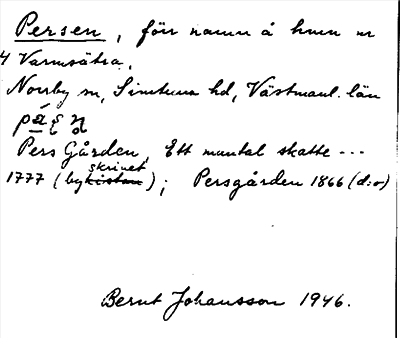 Persen, förr namn å hmn nr
4 Varmsätra,
Norrby sn, Simtuna hd, Västmanl. län
Pers Gården, Ett mantal skatte ---
1777 (byskrinet); Persgården 1866 (d:o)
Bernt Johansson 1946.